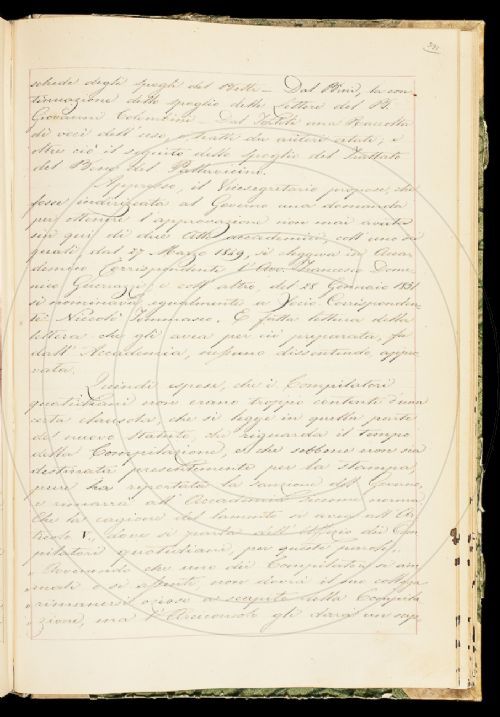 schede degli spogli del Betti — Dal Bini, la con-
tinuazione dello spoglio delle Lettere del B.
Giovanni Colombini — Dal Tortoli una Raccolta
di voci dell'uso, e tratti da autori citati, e
oltre ciò il seguito dello spoglio del Trattato
del Bene del Pallavicini.
Appresso, il Vicesegretario propose, che
fosse indirizzata al Governo una domanda
per ottenere l'approvazione non mai avuta
sin qui di due Atti accademici, coll'uno de'
quali, dal 27 Marzo 1849, si eleggeva in Acca-
demico Corrispondente l'Avv. Francesco Dome-
nico Guerrazzi, e coll'altro, del 28 Gennaio 1851
si nominava egualmente a Socio Corrisponden-
te Niccolò Tommaseo. E fatta lettura della
lettera che gli avea per ciò preparata, fu
dall'Accademia, nessuno dissentendo, appro-
vata.
Quindi espose, che i Compilatori
quotidiani non erano troppo contenti d'una
certa clausola, che si legge in quella parte
del nuovo Statuto, che riguarda il tempo
della Compilazione, e che sebbene non sia
destinata presentemente per la stampa,
pure ha riportata la sanzione del Governo,
e rimarrà all'Accademia siccome norma
Che la cagione del lamento si avea all'Ar-
ticolo V., dove si parla dell'Ufficio dei Com-
pilatori quotidiani, per queste parole:
"Avvenendo che uno dei Compilatori si am-
"mali o si assenti, non dovrà il suo collega
"rimanersi ozioso a scapito della Compila-
"zione, ma l'Arciconsolo gli darà un sup-